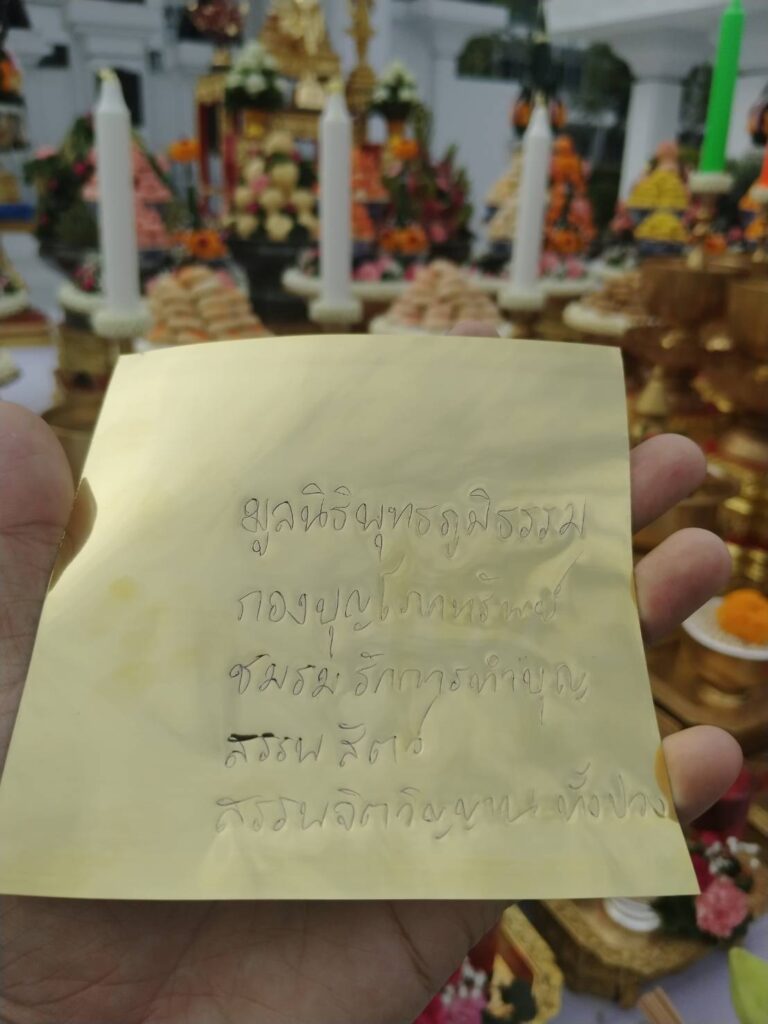 มูลนิธิพุทธภูมิธรรม
กองบุญโภคทรัพย์
ชมรม รักการทำบุญ
สรรพ สัตว์
สรรพจิตวิญญาณ ทั้งปวง